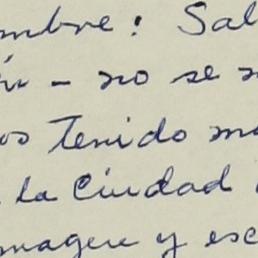 mbre: Sal
– no se
os Tenido
la Ciudad
magen y esc